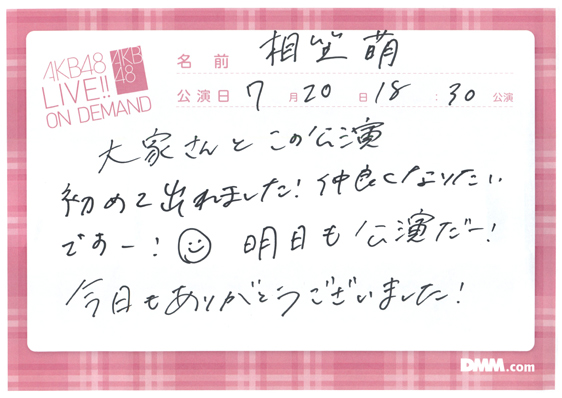 AKB48
LIVE!!
ON DEMAND
AKB
48
名前 相笠萌
公演日 7月20日 18:30 公演
大家さんとこの公演
初めて出れました!仲良くなりたい
ですー!明日も公演だー!
今日もありがとうございました!
DMM.com